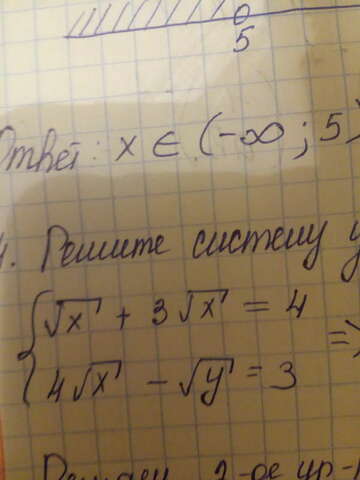 5
Ответ: x ∈ (-∞; 5)
4. Решите систему у
{√x + 3√x = 4
4√x - √y = 3 =>
2-ое ур-